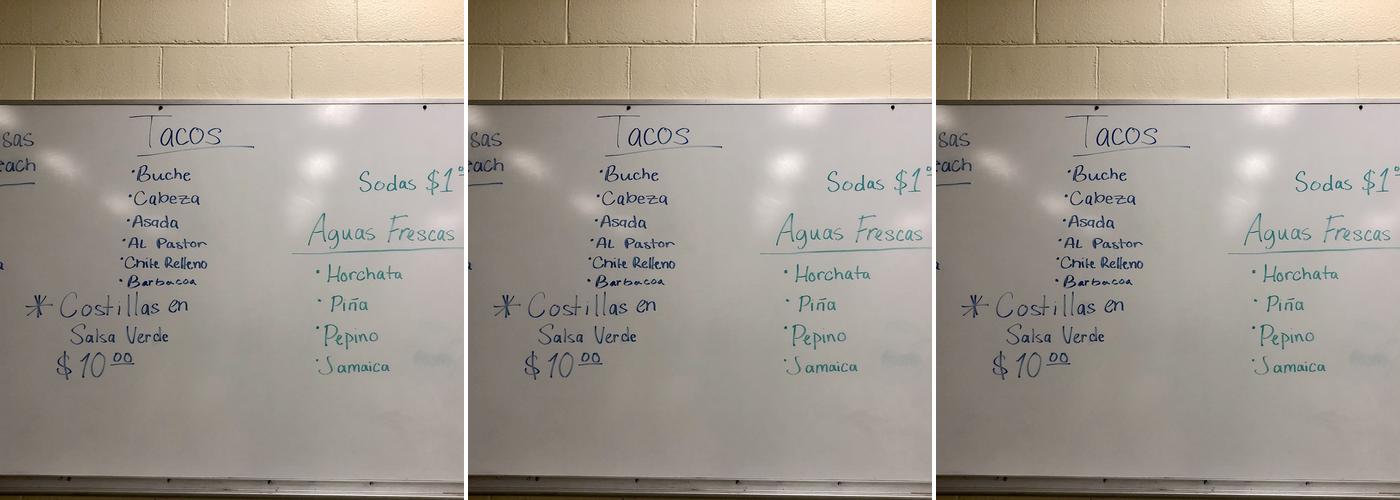 sas
each
Tacos
· Buche
· Cabeza
· Asada
· AL Pastor
· Chile Relleno
· Barbacoa
* Costillas en
Salsa Verde
$10.00
Sodas $1
Aguas Frescas
· Horchata
· Piña
· Pepino
· Jamaica
sas
each
Tacos
· Buche
· Cabeza
· Asada
· AL Pastor
· Chile Relleno
· Barbacoa
* Costillas en
Salsa Verde
$10.00
Sodas $1
Aguas Frescas
· Horchata
· Piña
· Pepino
· Jamaica
sas
each
Tacos
· Buche
· Cabeza
· Asada
· AL Pastor
· Chile Relleno
· Barbacoa
* Costillas en
Salsa Verde
$10.00
Sodas $1
Aguas Frescas
· Horchata
· Piña
· Pepino
· Jamaica